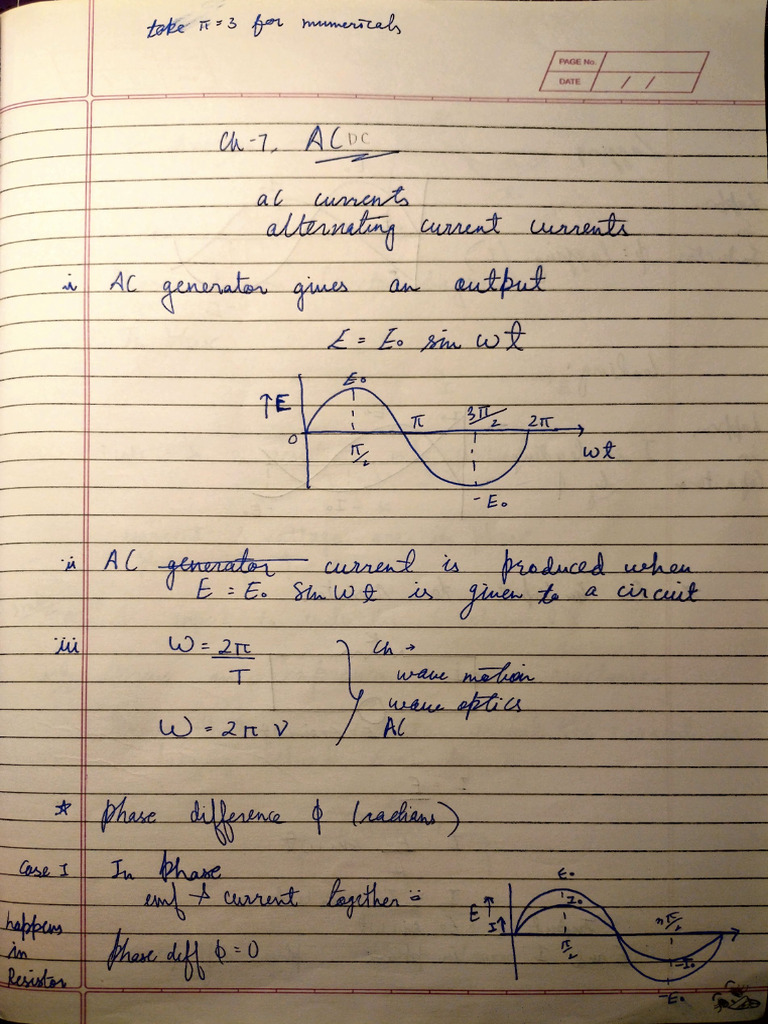 take π = 3 for numericals
PAGE No.
DATE / /
Ch-7, AC DC
ac currents
alternating current currents
i AC generator gives an output
E = E₀ sin ωt
↑E
E₀
0
π/2
π
3π/2
2π
ωt
-E₀
ii AC generator current is produced when
E = E₀ sin ωt is given to a circuit
iii ω = 2π/T
Ch →
wave motion
wave optics
ω = 2π ν
AC
* Phase difference ϕ (radians)
Case I In Phase
emf & current together
happens in Resistor
Phase diff ϕ = 0
E↑
I↑
E₀
I₀
π/2
3π/2
-I₀
-E₀